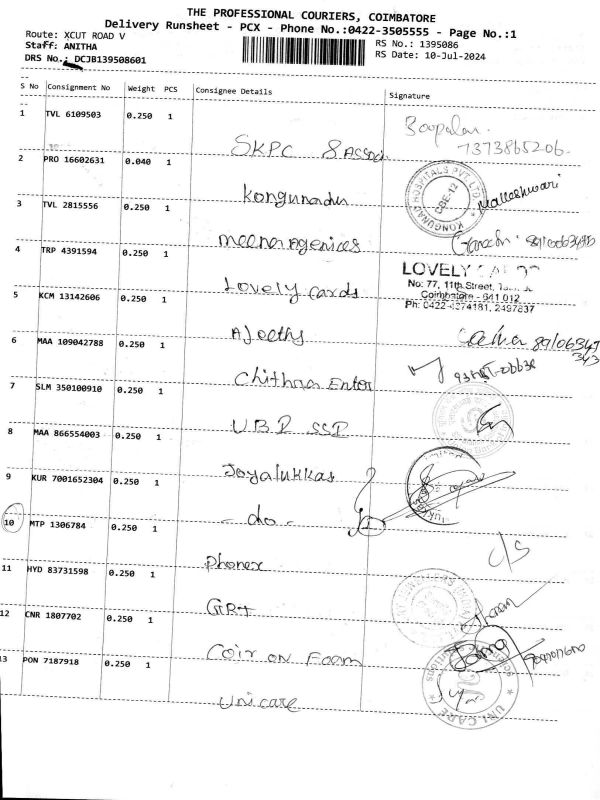 THE PROFESSIONAL COURIERS, COIMBATORE
Delivery Runsheet - PCX - Phone No.:0422-3505555 - Page No.:1
Route: XCUT ROAD V
Staff: ANITHA
DRS No.: DCJB139508601
RS No.: 1395086
RS Date: 10-Jul-2024
S No Consignment No Weight PCS Consignee Details Signature
1 TVL 6109503 0.250 1 SKPC & Assoc
7373865206
2 PRO 16602631 0.040 1 Kongunadu Malleshwari
KONGUNAD HOSPITALS PVT LTD CBE-12
3 TVL 2815556 0.250 1 meenaragenices
4 TRP 4391594 0.250 1 Lovely Cards
LOVELY
No: 77, 11th Street,
Coimbatore - 641 012
Ph: 0422-4374181, 2497837
5 KCM 13142606 0.250 1 Ajeeths
6 MAA 109042788 0.250 1 Chithraa Enter
7 SLM 350100910 0.250 1 UBI SSI
8 MAA 866554003 0.250 1 Joyalukkas
9 KUR 7001652304 0.250 1 - do -
10 MTP 1306784 0.250 1 Phonex
11 HYD 83731598 0.250 1 GRT
12 CNR 1807702 0.250 1 Coir on Foam
13 PON 7187918 0.250 1 Unicare
UNI.CARE